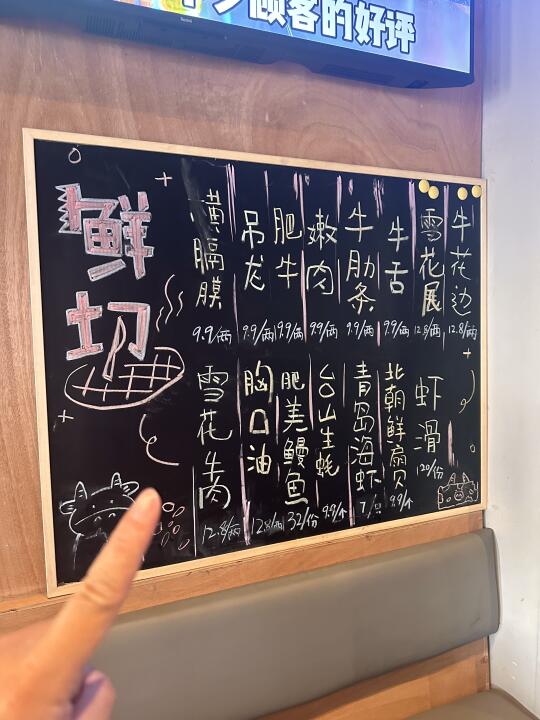 顾客的好评
鲜切
横膈膜
9.9/两
吊龙
9.9/两
肥牛
9.9/两
嫩肉
9.9/两
牛肋条
9.9/两
牛舌
9.9/两
雪花展
12.8/两
牛花边
12.8/两
雪花牛肉
12.8/两
胸口油
12.8/两
肥美鳗鱼
32/份
台山生蚝
9.9/个
青岛海虾
7/只
北朝鲜扇贝
9.9/个
虾滑
120/份